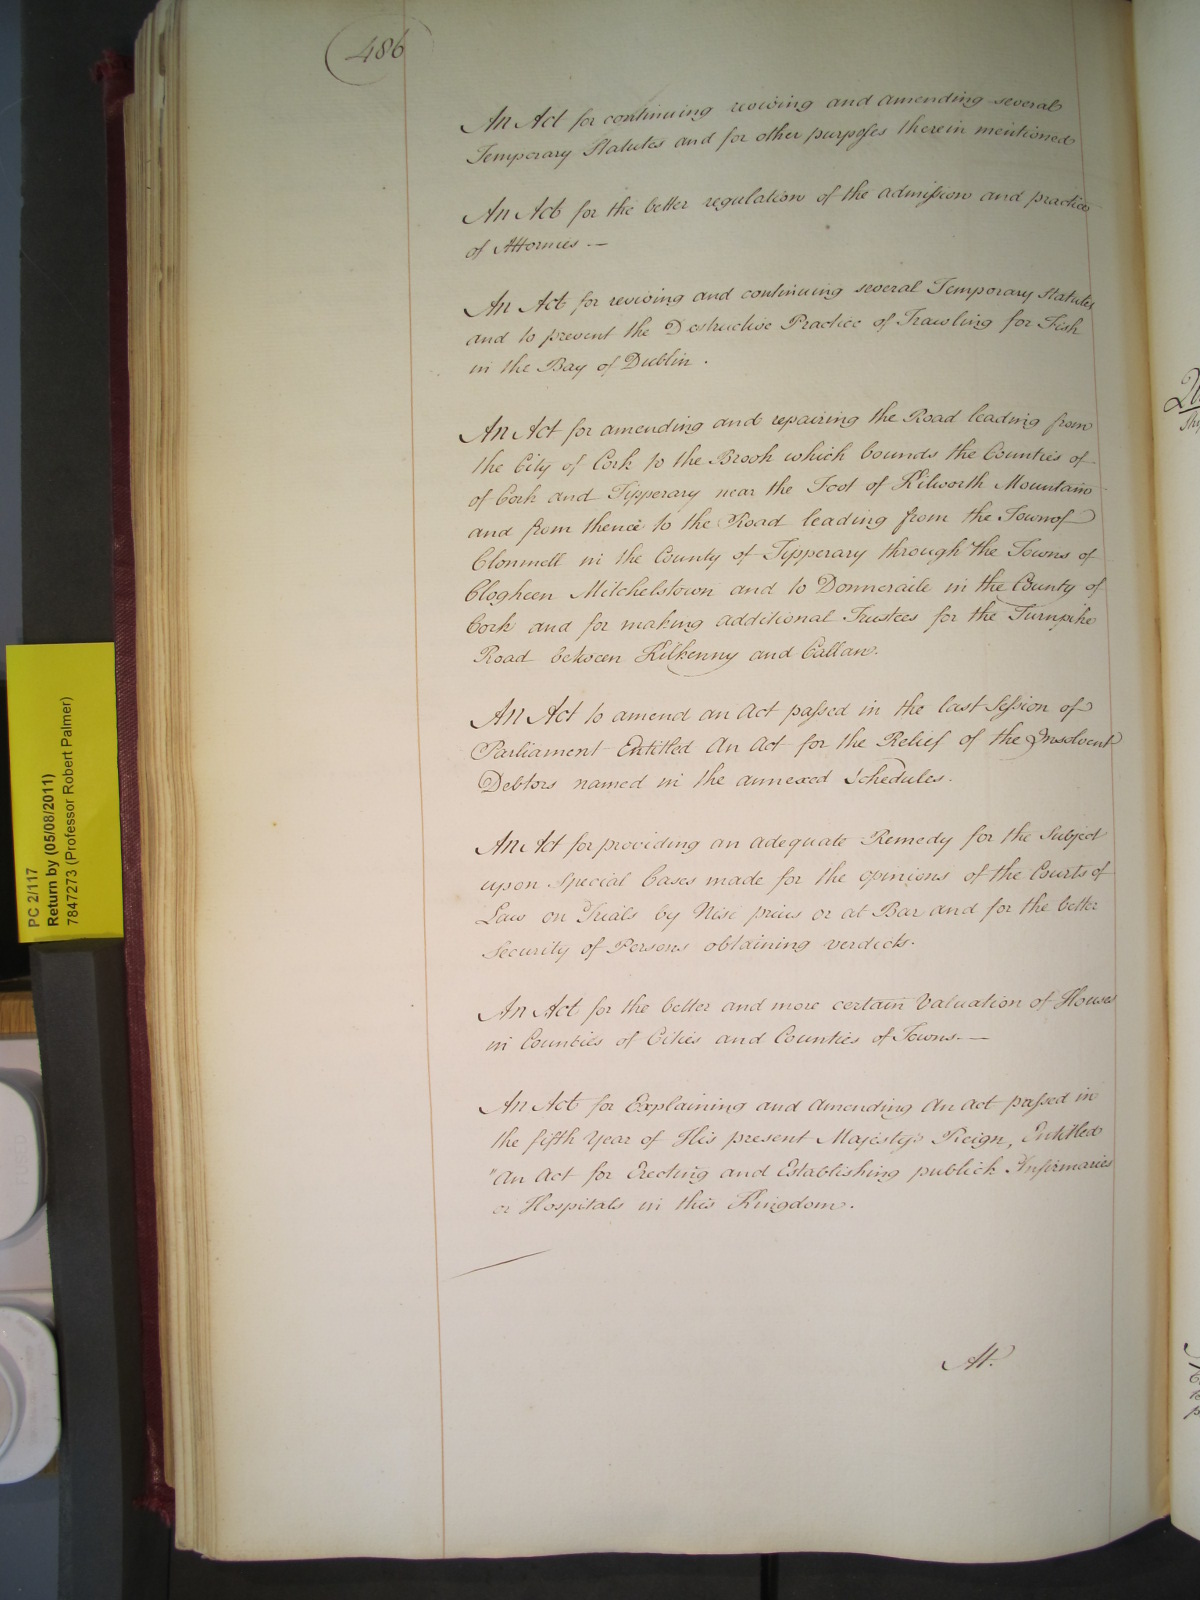 486
An Act for continuing reviving and amending several
Temporary Statutes and for other purposes therein mentioned
An Act for the better regulation of the admission and practice
of Attornies —
An Act for reviving and continuing several Temporary Statutes
and to prevent the Destructive Practice of Trawling for Fish
in the Bay of Dublin .
An Act for amending and repairing the Road leading from
the City of Cork to the Brook which bounds the Counties of
of Cork and Tipperary near the Foot of Kilworth Mountain
and from thence to the Road leading from the Town of
Clonmell in the County of Tipperary through the Towns of
Clogheen Mitchelstown and to Donneraile in the County of
Cork and for making additional Trustees for the Turnpike
Road between Kilkenny and Callan.
An Act to amend an Act passed in the last Session of
Parliament Entitled An Act for the Relief of the Insolvent
Debtors named in the annexed Schedules.
An Act for providing an adequate Remedy for the Subject
upon Special Cases made for the opinions of the Courts of
Law on Trials by Nisi prius or at Bar and for the better
Security of Persons obtaining verdicts.
An Act for the better and more certain Valuation of Houses
in Counties of Cities and Counties of Towns. —
An Act for Explaining and Amending An Act passed in
the fifth Year of His present Majesty's Reign, Entitled
"An Act for Erecting and Establishing publick Infirmaries
or Hospitals in this Kingdom.
At
PC 2/117
Return by (05/08/2011)
7847273 (Professor Robert Palmer)